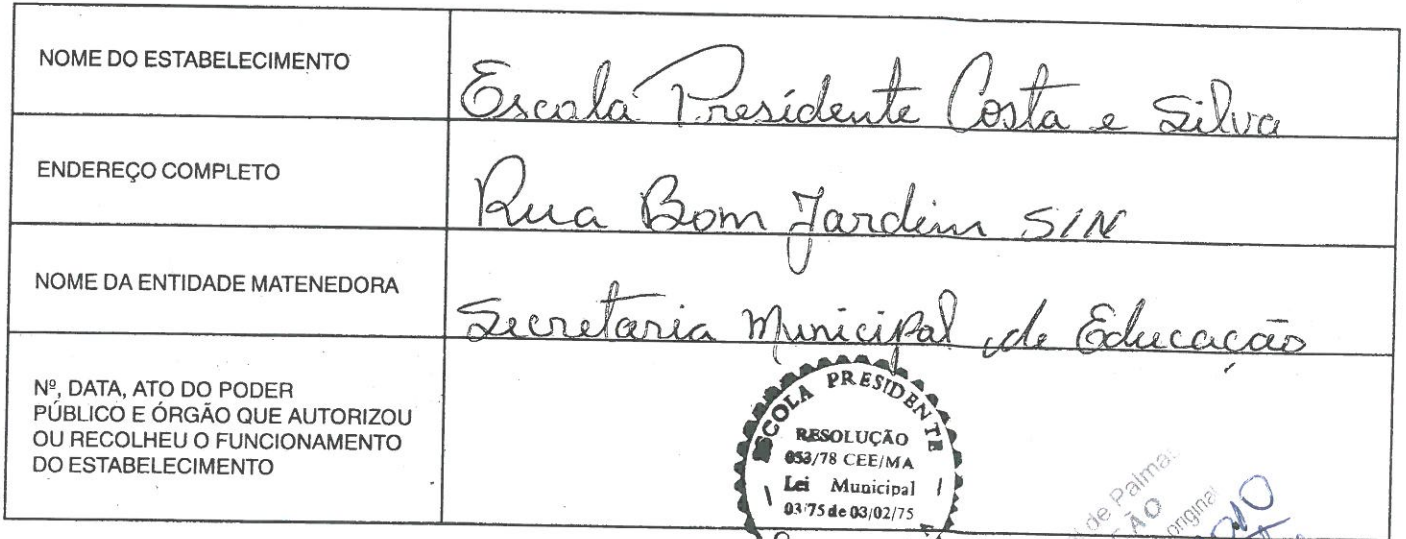 NOME DO ESTABELECIMENTO
Escola Presidente Costa e Silva
ENDEREÇO COMPLETO
Rua Bom Jardim S/N
NOME DA ENTIDADE MATENEDORA
Secretaria Municipal de Educação
Nº, DATA, ATO DO PODER
PÚBLICO E ÓRGÃO QUE AUTORIZOU
OU RECOLHEU O FUNCIONAMENTO
DO ESTABELECIMENTO
ESCOLA PRESIDENTE
RESOLUÇÃO
053/78 CEE/MA
Lei Municipal
03/75 de 03/02/75
de Palmas
original